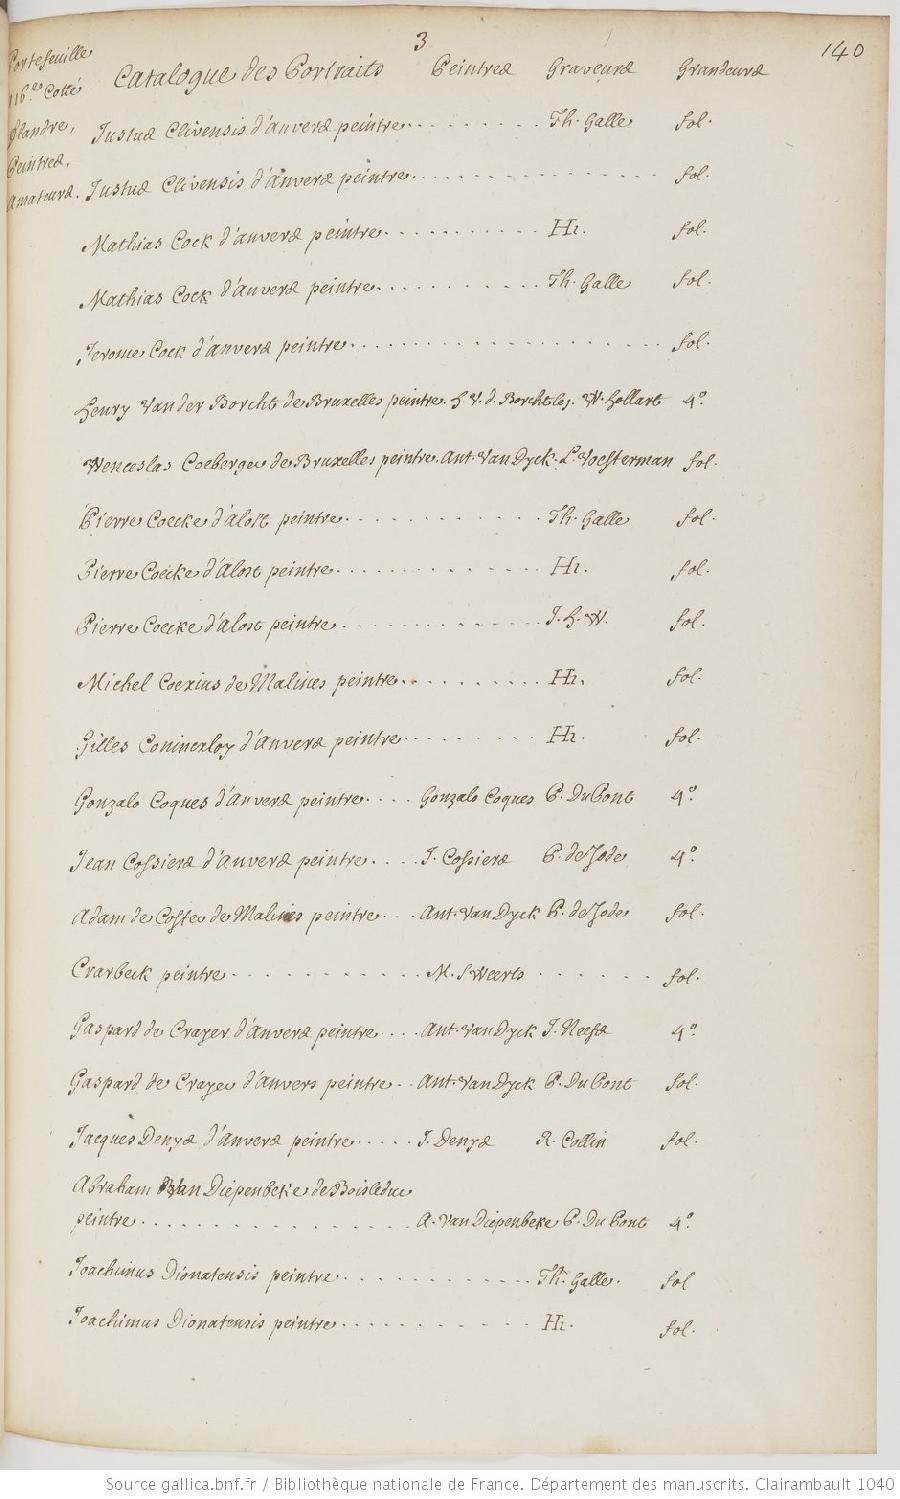 3
140
Portefeuille
116.e Cotté
flandre,
Peintres,
amateurs.
Catalogue des Portraits Peintres Graveurs Grandeurs
Justus Clivensis d'anvers peintre . . . . Th. Galle fol.
Justus Clivensis d'anvers peintre . . . . fol.
Mathias Cock d'anvers peintre . . . . H. fol.
Mathias Cock d'anvers peintre . . . . Th. Galle fol.
Jerome Cock d'anvers peintre . . . . fol.
henry Vander Borcht de Bruxelles peintre. h. V. d. Borcht W. hollart 4.º
Wenceslas Coeberger de Bruxelles peintre. Ant. Van Dyck. L. Vosterman fol.
Pierre Coecke d'alost peintre . . . . Th. Galle fol.
Pierre Coecke d'alost peintre . . . . H. fol.
Pierre Coecke d'alost peintre . . . . J. h. W. fol.
Michel Coexius de Malines peintre . . . . H. fol.
Gilles Coninexloy d'anvers peintre . . . . H. fol.
Gonzalo Coques d'anvers peintre . . . . Gonzalo Coques P. Du Pont 4.º
Jean Cossiers d'anvers peintre . . . . J. Cossiers P. de Jode 4.º
Adam de Coster de Malines peintre . . . Ant. Van Dyck P. de Jode fol.
Crarbeck peintre . . . . M. Sweerts . . . . fol.
Gaspard de Crayer d'anvers peintre . . . Ant. Van Dyck J. Neefs 4.º
Gaspard de Crayer d'anvers peintre . . Ant. Van Dyck P. Du Pont fol.
Jacques Denys d'anvers peintre . . . . J. Denys R. Collin fol.
Abraham Van Diepenbeke de Boisleduc
peintre . . . . A. van Diepenbeke P. Du Pont 4.º
Joachimus Dionatensis peintre . . . . Th. Galle. fol
Joachimus Dionatensis peintre . . . . H. fol.
Source gallica.bnf.fr / Bibliothèque nationale de France. Département des manuscrits. Clairambault 1040